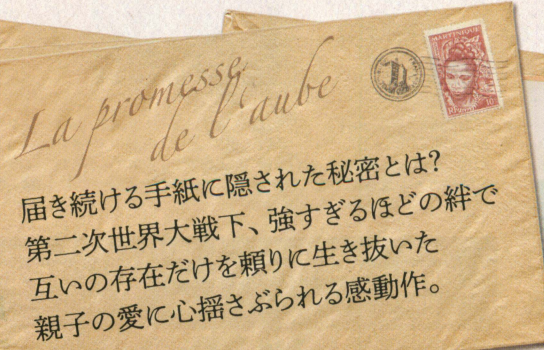 La promesse
de l'aube
MARTINIQUE
届き続ける手紙に隠された秘密とは?
第二次世界大戦下、強すぎるほどの絆で
互いの存在だけを頼りに生き抜いた
親子の愛に心揺さぶられる感動作。